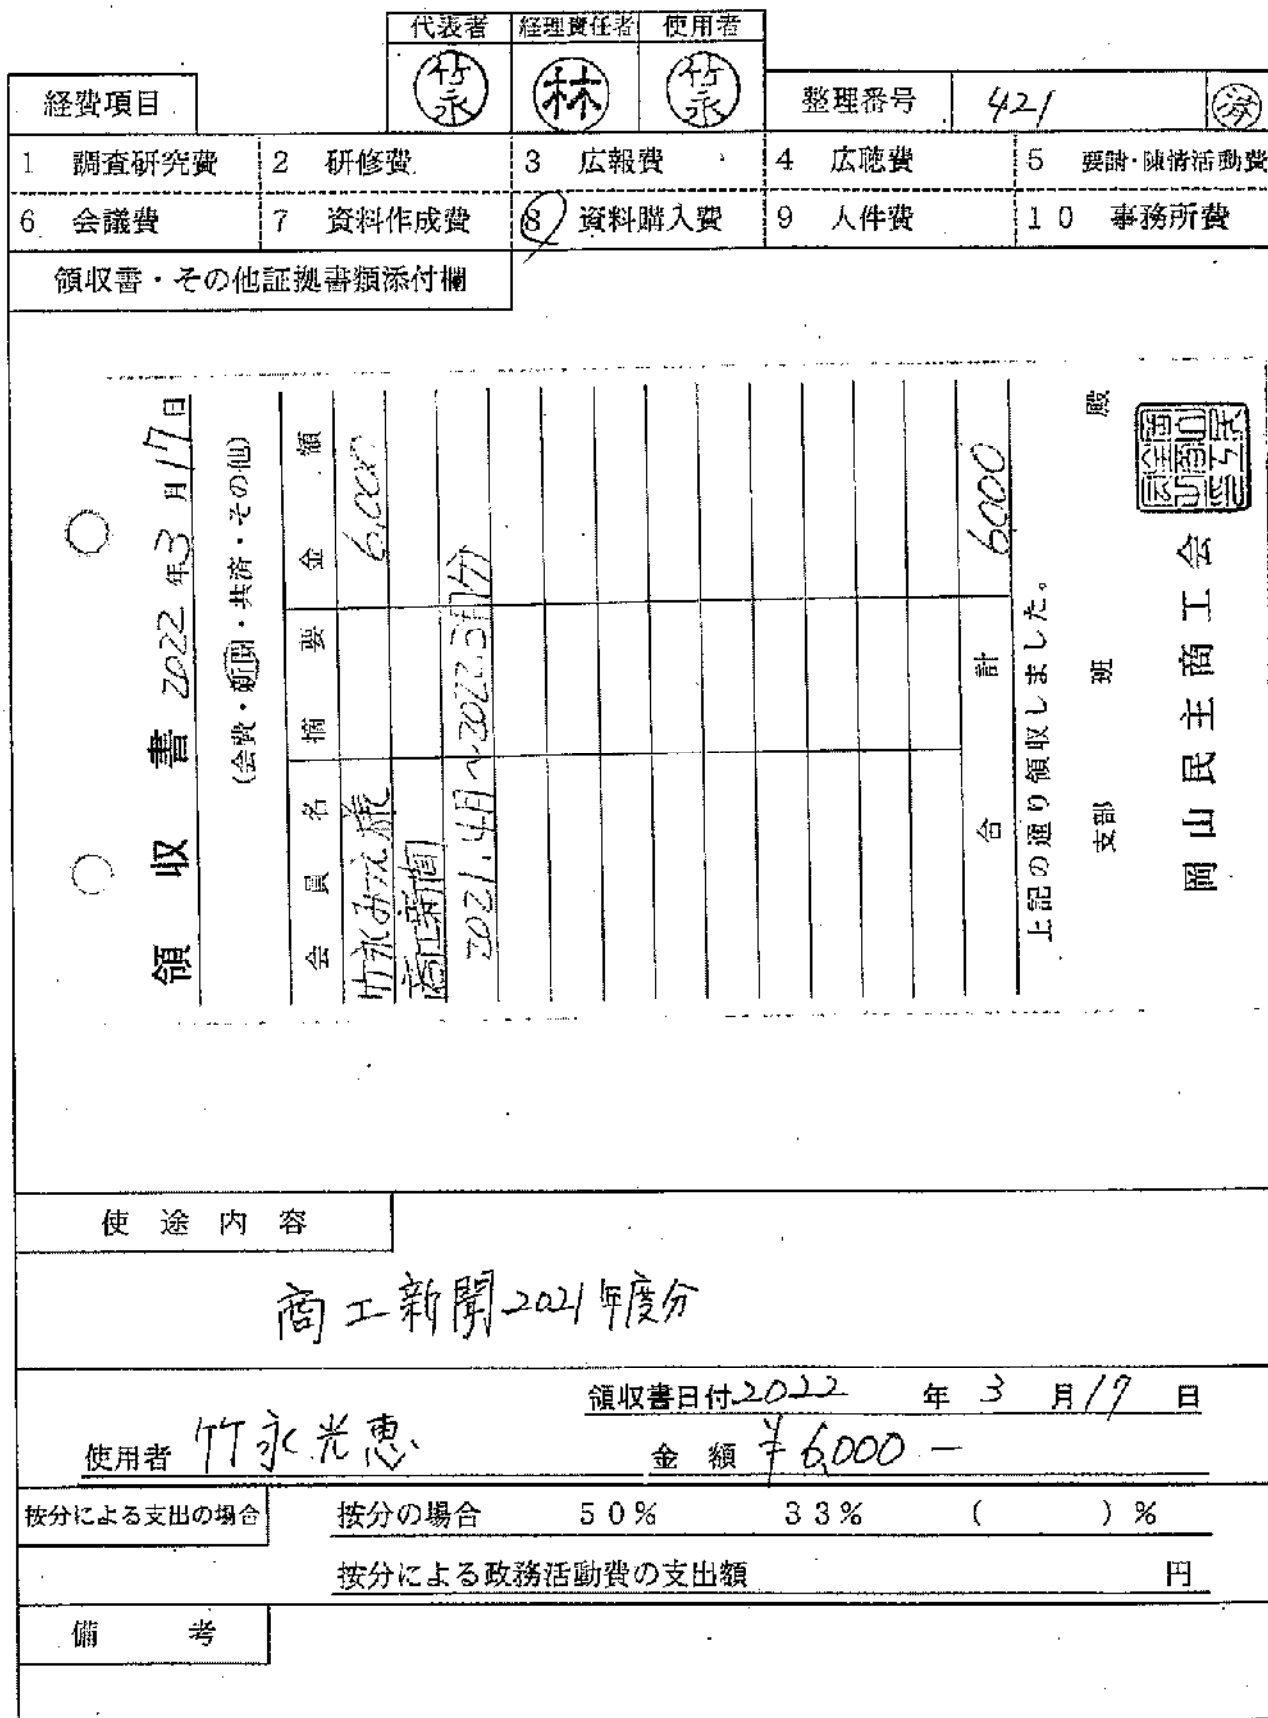 代表者 経理責任者 使用者
竹永 林 竹永
経費項目 整理番号 421 済
1 調査研究費 2 研修費 3 広報費 4 広聴費 5 要請・陳情活動費
6 会議費 7 資料作成費 8 資料購入費 9 人件費 10 事務所費
領収書・その他証拠書類添付欄
領収書 2022年3月17日
(会費・新聞・共済・その他)
会員名 摘要 金額
竹永みつえ様 6,000
商工新聞
2021.4月~2022.3月分
合計 6000
上記の通り領収しました。
支部 班 殿
岡山民主商工会
使途内容
商工新聞2021年度分
領収書日付2022年3月17日
使用者 竹永光恵 金額 ¥6,000-
按分による支出の場合 按分の場合 50% 33% ( )%
按分による政務活動費の支出額 円
備考